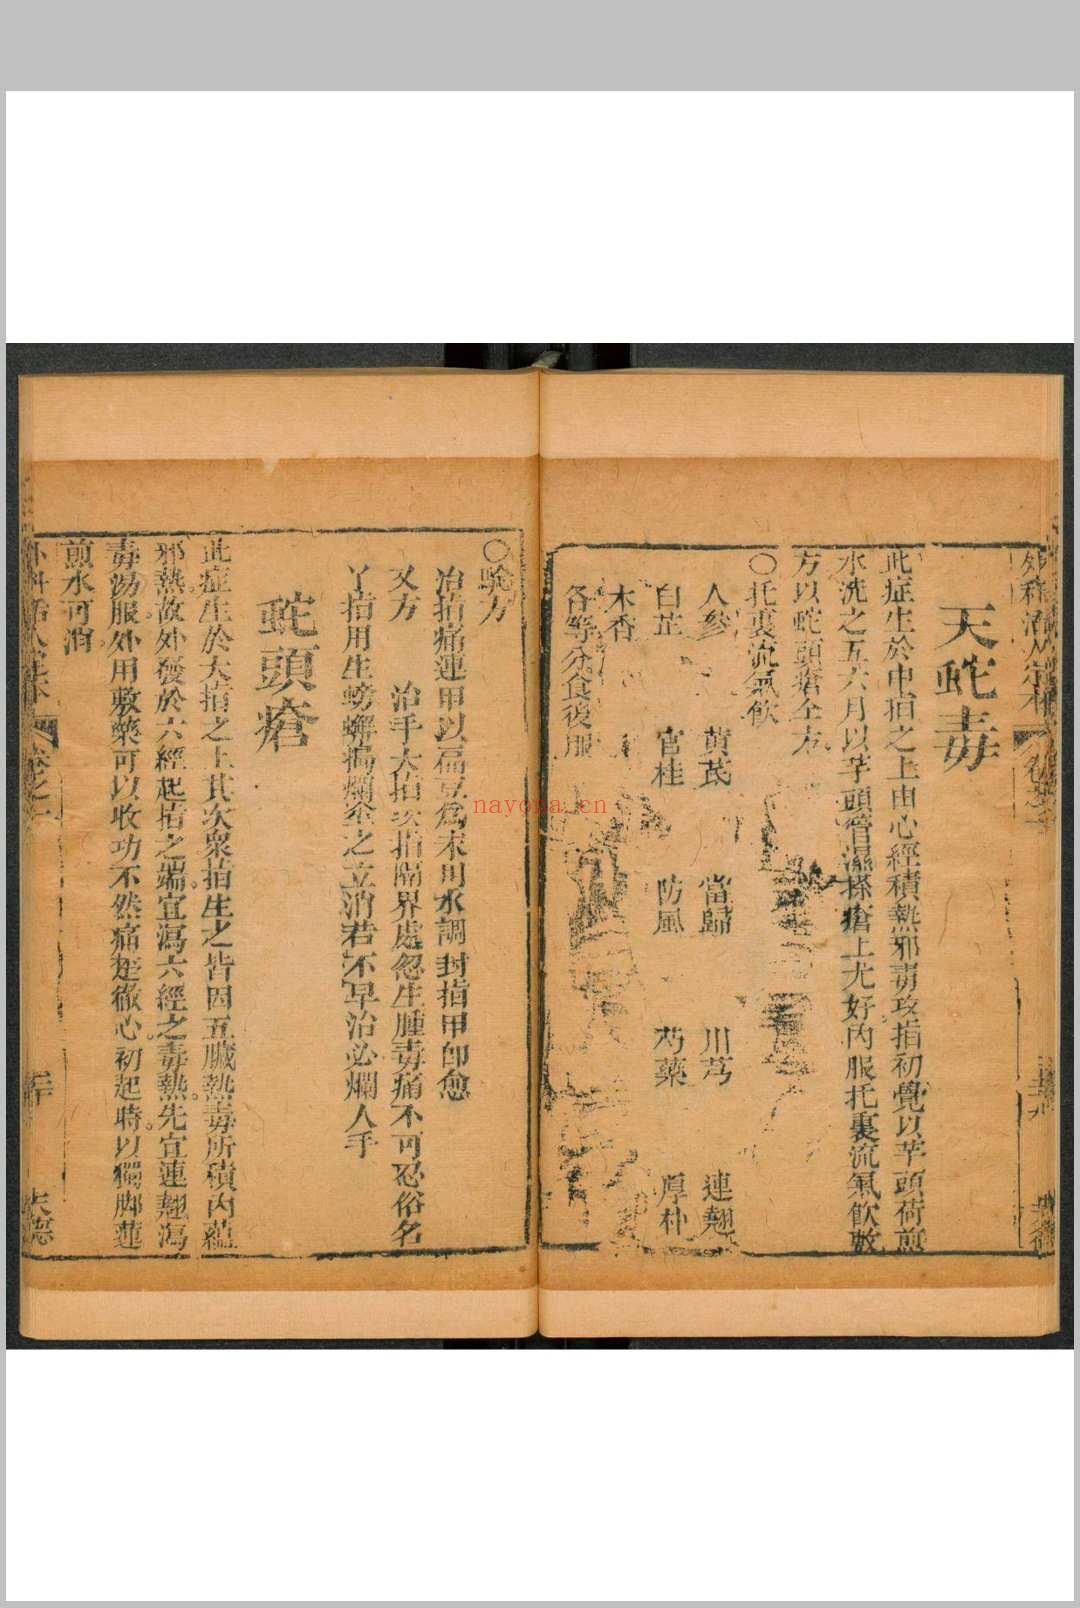 天蛇毒
此症生於中指之上由心經積熱邪毒攻指初覺以芋頭荷煎
水洗之五六月以芋頭管濕搽瘡上尤好內服托裏流氣飲敷
方以蛇頭瘡全方
○托裏流氣飲
人參 黃芪 當歸 川芎 連翹
白芷 官桂 防風 芍藥 厚朴
木香
各等分食後服
○驗方
治指痛連甲以扁豆為末用水調封指甲即愈
又方 治手大指次指隔界處忽生腫毒痛不可忍俗名
丫指用生螃蠏搗爛傘之立消若不早治必爛人手
蛇頭瘡
此症生於大指之上其次衆指生之皆因五臟熱毒所積內蘊
邪熱故外發於六經起指之端宜瀉六經之毒熱先宜連翹瀉
毒湯服外用敷藥可以收功不然痛楚徹心初起時以獨脚蓮
煎水可消
nayona.cn